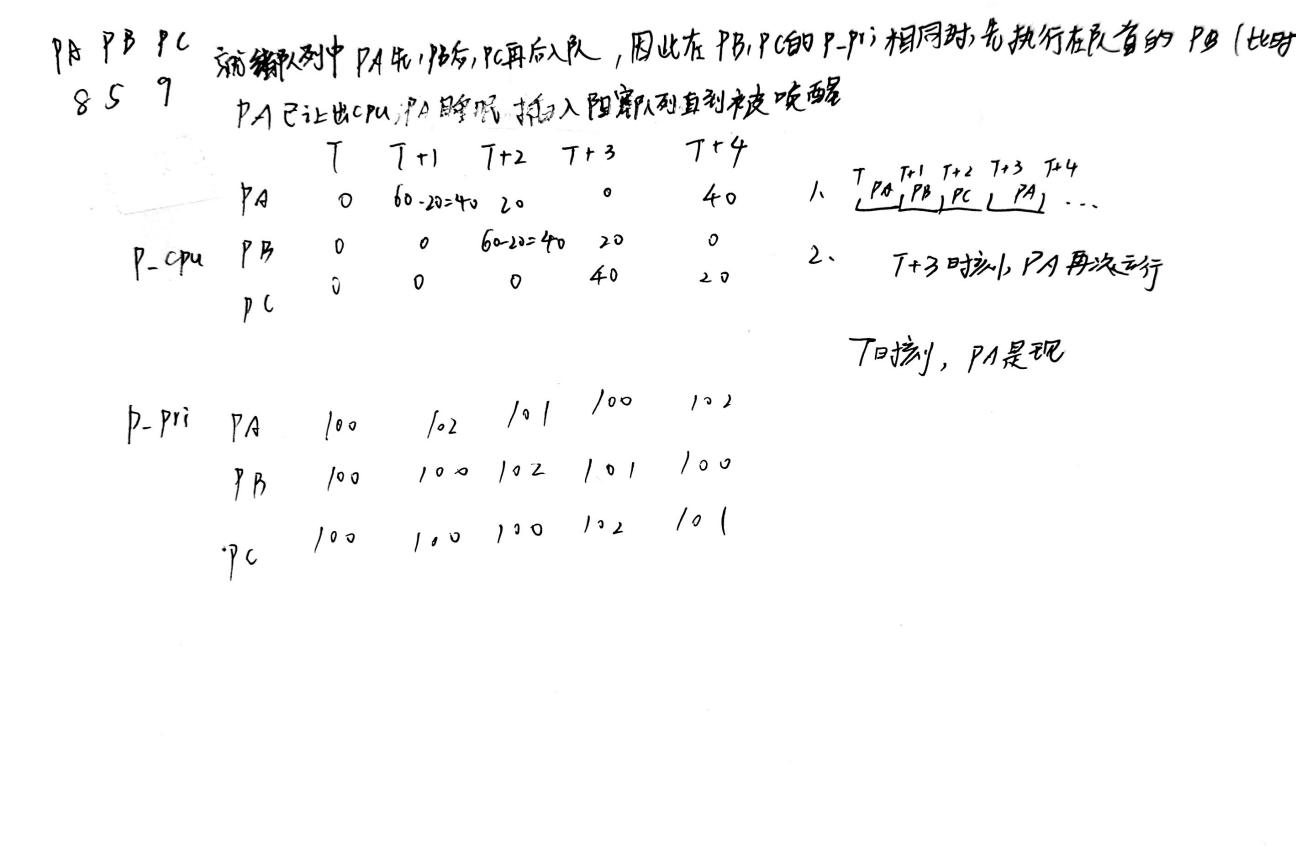 PA PB PC
8 5 9
就绪队列中 PA先,PB后,PC再后入队,因此在PB,PC的P_pri相同时,先执行在队首的PB(此时
PA已让出CPU,PA睡眠 插入阻塞队列直到被唤醒
T T+1 T+2 T+3 T+4
PA 0 60-20=40 20 0 40
P_cpu PB 0 0 60-20=40 20 0
PC 0 0 0 40 20
P_pri PA 100 102 101 100 102
PB 100 100 102 101 100
PC 100 100 100 102 101
1、 T T+1 T+2 T+3 T+4
PA PB PC PA ...
2、 T+3时刻,PA再次运行
T时刻,PA是现